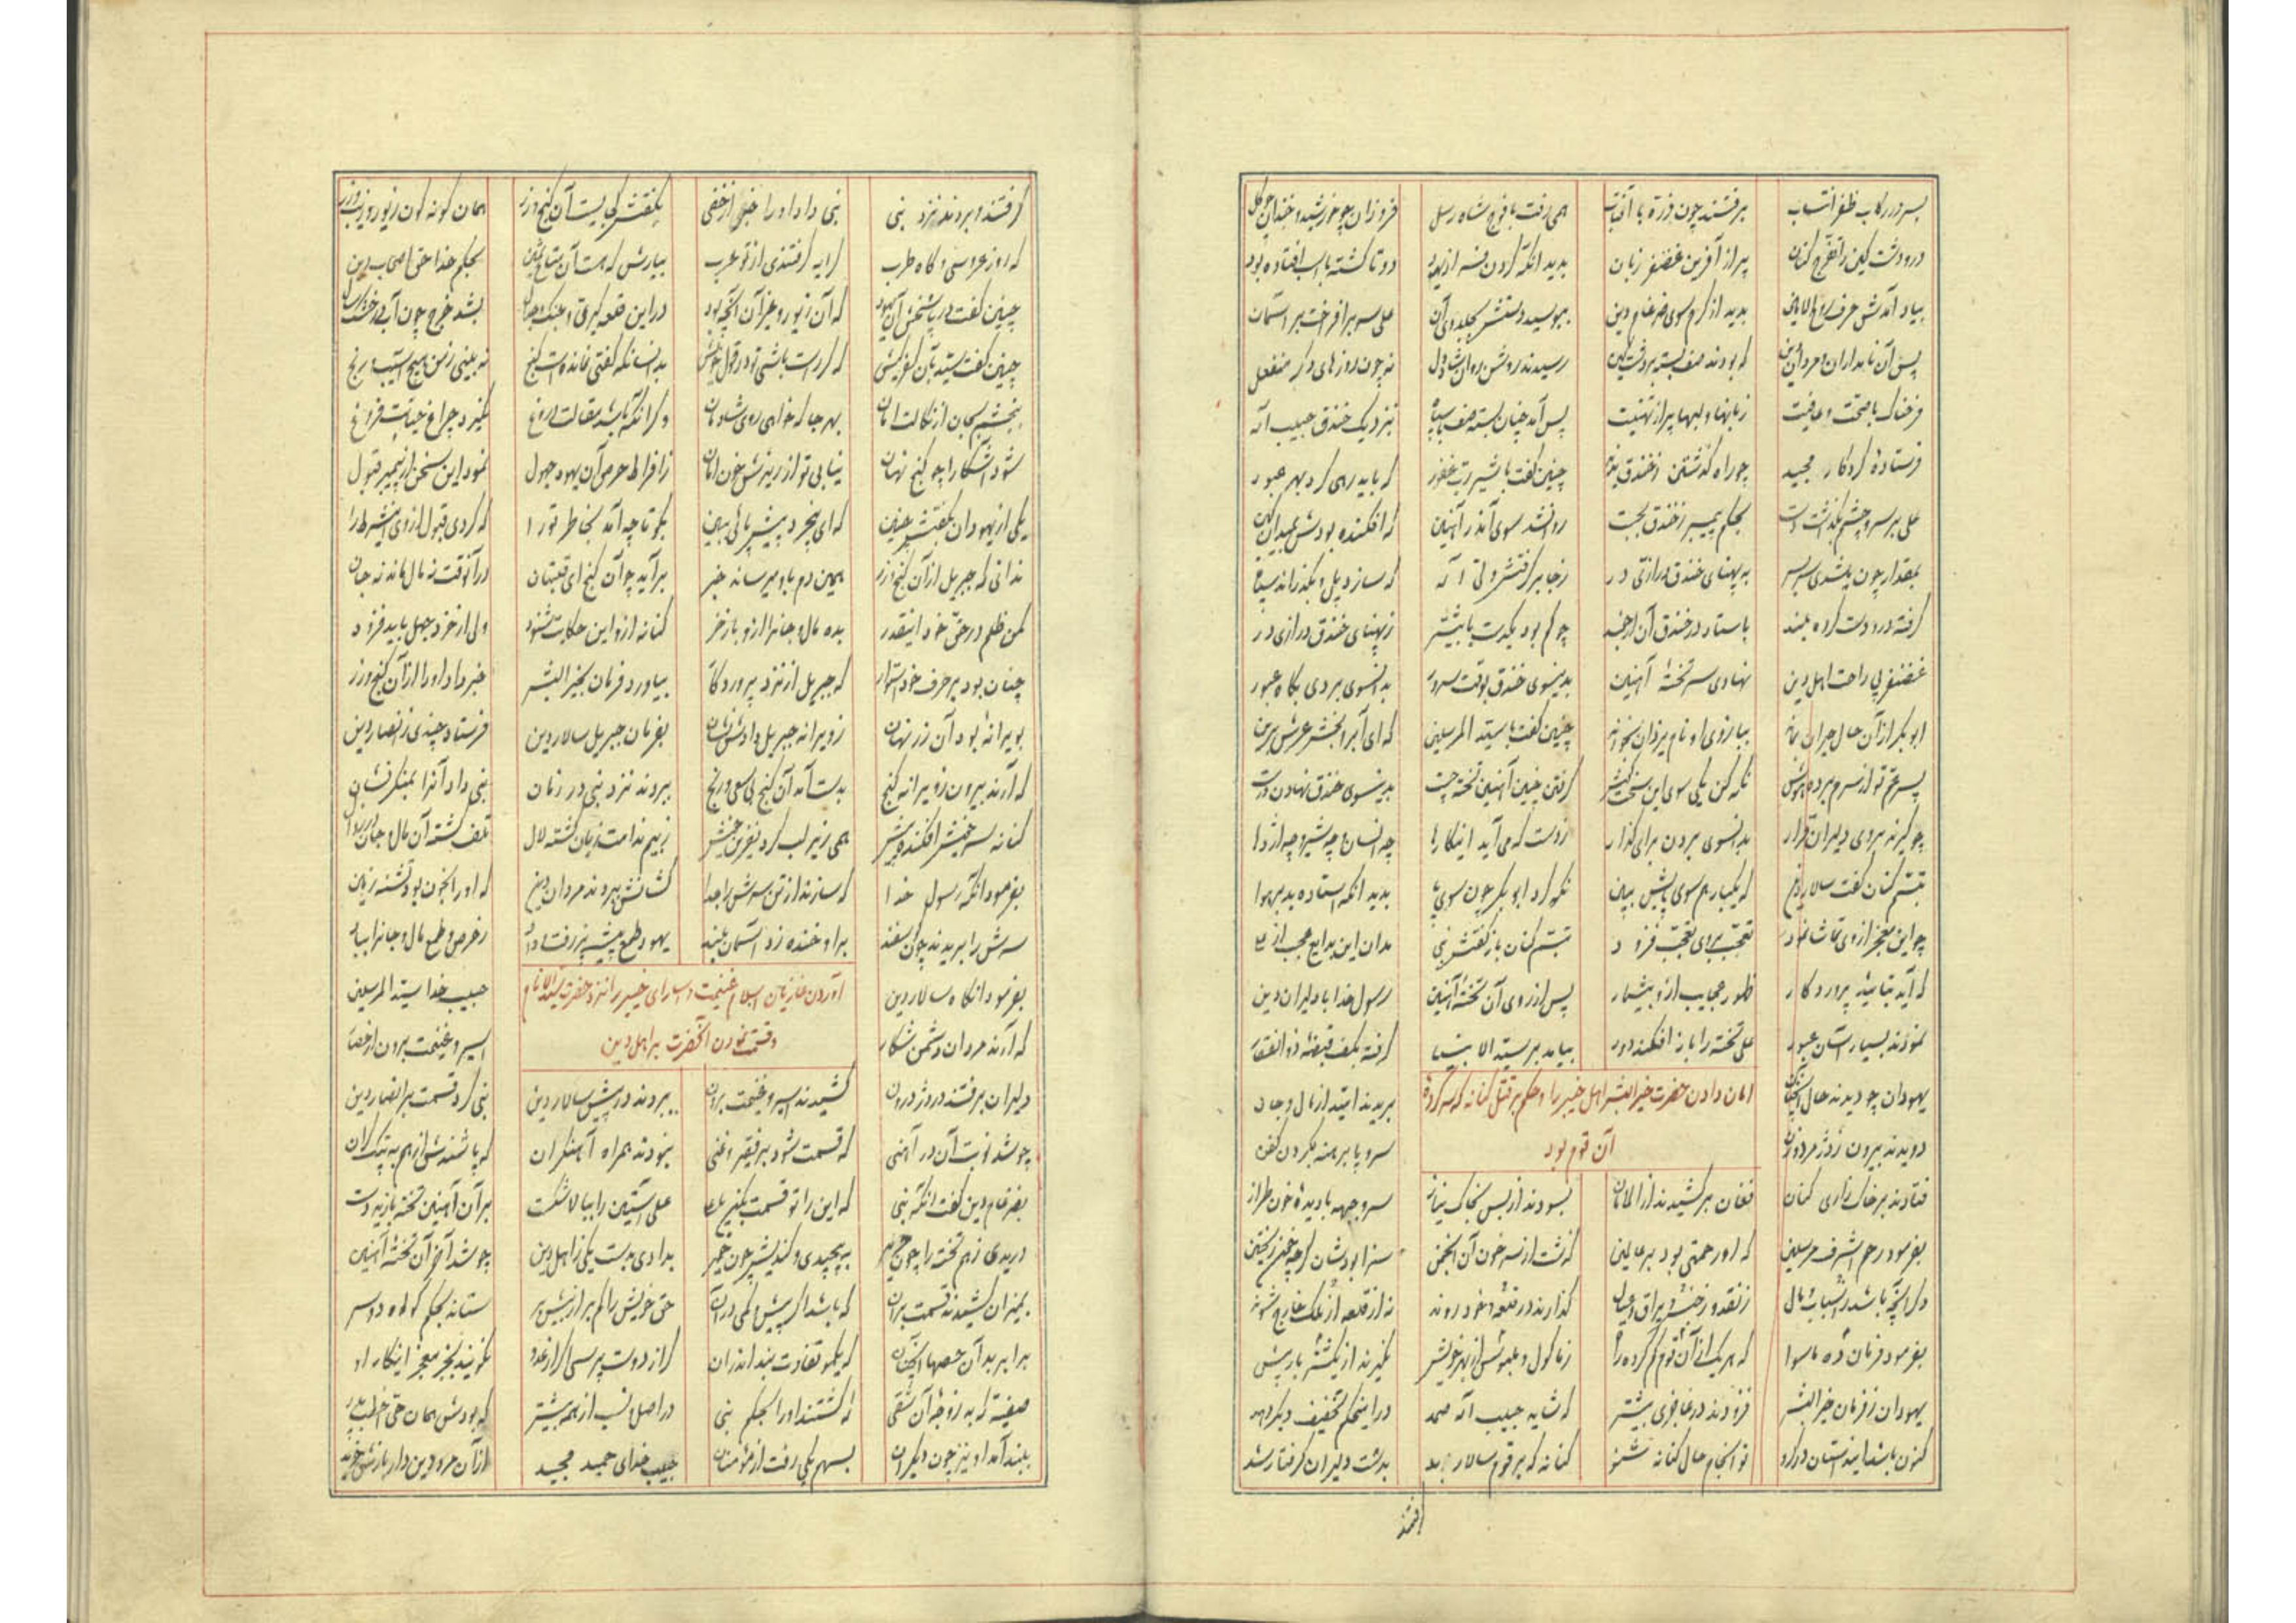 بسر در رکاب ظفر انتساب برفتند چون ذره با آفتاب همی رفت با فوج شاه رسل فروزان چو خورشید و خندان چو گل
در و دشت کین را تفرج کنان پر از آفرین غضنفر زبان بدید آنکه گردون دو تا گشته افتاده بود
بیاد آمدش حرف روح الامین بدید از کرم سوی ضرغام دین ببوسید دستش علی سر برافراخت بر آسمان
پس آن نامداران و مردان دین که بودند صف بسته بر دشت کین رسیدند روشن روان شاد دل نه چون روزهای دگر منفعل
فرحناک با صحت و عافیت زبانها و لبها پر از تهنیت پس آمد چنان بسته صف با سپاه بنزدیک خندق حبیب اله
فرستادهٔ کردگار مجید چو راه گذشتن ز خندق ندید چنین گفت با شیر رب غفور که باید رهی کرد بهر عبور
علی بر سر و چشم بگذاشت دست بحکم پیمبر ز خندق بجست روان شد سوی آن در آهنین که افکنده بودش بمیدان کین
بمقدار چون به پهنای خندق درازی در ز جا بر گرفتش ولی اله که سازد پل و بگذراند سپاه
گرفته در و دست کرده بلند باستاد در خندق آن ارجمند چو کم بود یکدست یا بیشتر ز پهنای خندق درازی در
غضنفر پی راحت اهل دین نهادی سر تختهٔ آهنین بدینسوی خندق بوقت سرور بدانسوی بردی بگاه عبور
ابوبکر از آن حال حیران بماند ببازوی او نام یزدان بخواند چنین گفت با سید المرسلین که ای آبرو بخش عرش برین
پسر عم تو از سرم برد هوش نگه کن یکی سوی این سخت کوش گرفتن چنین آهنین تخته چست بدینسوی خندق نهادن درست
چو گیرند بر وی دلیران قرار بدانسوی بردن برای گذار ز دست که می آید اینکارها چه انسان و چه شیر و چه اژدها
تبسم کنان گفت سالار دین که یکبار هم سوی پایش ببین نگه کرد ابوبکر چون سوی پا بدید آنکه استاده بد بر هوا
چو این معجز از وی تماشا نمود تعجب بروی تعجب فزود تبسم کنان باز گفتش نبی مدان این بدایع عجب از علی
که آید بتائید پروردگار ظهور عجایب ازو بیشمار پس از روی آن تختهٔ آهنین رسول خدا با دلیران دین
نمودند بسیار آسان عبور علی تخته را باز افکند دور بیامد بر سید الانبیا گرفته بکف قبضهٔ ذوالفقار
امان دادن حضرت خیر البشر اهل خیبر را و حکم بر قتل کنانه که سرکردهٔ
آن قوم بود
یهودان چو دیدند حال آنچنان بریدند امید از مال و جان
دویدند بیرون ز دژ مرد و زن سر و پا برهنه بگردن کفن
فتادند بر خاک زاری کنان فغان برکشیدند از الامان بسودند از بس بخاک نیاز سر و جبهه با دیدهٔ خون طراز
بفرمود رحم اشرف مرسلین که او رحمتی بود بر عالمین گذشت از سر خون آن انجمن سزا بودشان گرچه خون ریختن
دگر آنچه باشد ز اسباب و مال ز نقد و ز جنس و یراق گذارند در قلعه و خود روند نه از قلعه از ملک خارج شوند
بفرمود فرمان ده ماسوا که هر یک از آن قوم گم کرده راه ز ماکول و ملبوس از بهر خویش نگیرند از یکشتر بار بیش
یهودان ز فرمان خیر البشر فزودند در عاجزی بیشتر که شاید حبیب اله صمد در این حکم تخفیف دیگر دهد
کنون باشد این داستان تو انجام حال کنانه شنو کنانه که بر قوم سالار بد بدست دلیران گرفتار شد
گرفتند و بردند نزد نبی نبی داد او را خبر از خفی بگفتش کی بیست آن گنج و زر همان گونه گون زیور
که روز عروسی و گاه طرب کرایه گرفتندی از تو عرب بیارش که هست آن متاع ثمین بحکم خدا حق اصحاب دین
چنین گفت در پاسخش آن یهود که آن زیور و غیر آن آنچه بود در این قلعه گیری و جنگ و جدال بشد خرج چون آب
چنین گفت سید بآن کفر کیش که گر راست باشی تو در قول خویش بدانسان که گفتی نمانده است گنج نه بینی ز من هیچ آسیب و رنج
ببخشم بجان از نکالت امان بهر جا که خواهی روی شادمان وگر آنکه باشد مقالت دروغ نگیرد چراغ حیاتت فروغ
شود آشکارا چو گنج نهان نیابی تو از ریزش خون امان ز افراط حرص آن یهود جهول نمود این سخن از پیمبر قبول
یکی از یهودان بگفتش چنین که ای بیخرد پیش پائی ببین بگو تا چه آمد بخاطر تو را که کردی قبول از وی این شرط را
ندانی که جبریل از آن گنج و زر همین دم باو میرساند خبر برآید چو آن گنج ای قلتبان در آنوقت نه مال ماند نه جان
مکن ظلم در حق خود اینقدر بده مال و جانرا ازو باز خر کنانه ازو این حکایت شنود ولی از خرد جهل باید فزود
چنان بود بر حرف خود استوار که جبریل از نزد پروردگار بیاورد فرمان بخیر البشر خبر داد او را از آن گنج و زر
بویرانهٔ بود آن زر نهان ز ویرانه جبریل دادش نشان بفرمان جبریل سالار دین فرستاد چندی ز انصار دین
که آرند بیرون ز ویرانه گنج بدست آمد آن گنج بی سعی و رنج ببردند نزد نبی در زمان نبی داد آنرا بمنکر نشان
کنانه سر خویش افکند پیش همی زیر لب کرد نفرین خویش ز بیم ندامت زبان گشته لال تلف گشته آن مال و جان
بفرمود آنگه رسول خدا که سازند از تن سرش را جدا کشانش ببردند مردان دین که او را بخون بود تشنه زمین
سرش را بریدند چون گوسفند برو خنده زد آسمان بلند یهود طمع پیشه زر فتاد ز حرص و طمع مال و جانرا بباد
آوردن غازیان اسلام غنیمت و اسرای خیبر را نزد حضرت سید الانام
و قسمت نمودن آنحضرت بر اهل دین
بفرمود آنگاه سالار دین حبیب خدا سید المرسلین
که آرند مردان دشمن شکار اسیر و غنیمت برون از حصار
دلیران برفتند در دژ درون کشیدند اسیر و غنیمت برون ببردند در پیش سالار دین نبی کرد قسمت بر انصار دین
چو شد نوبت آن در آهنی که قسمت شود بر فقیر و غنی نبودند همراه آهنگران که پاشندش از هم به پتک گران
بضرغام دین گفت آنگه نبی که این را تو قسمت بکن یا علی علی آستین را ببالا شکست بر آن آهنین تخته یازید دست
دریدی ز هم تخته را چون حریر به پیچیدی و کندیش چون خمیر بدادی بدست یکی ز اهل دین چو شد آخر آن تختهٔ آهنین
بمیزان کشیدند قسمت بران که باشد اگر بیش و کمی در آن ستاند بحکم گواه دو سر
برابر بد آن حصه‌ها آنچنان که یکمو تفاوت نبد اندران گر از دوست پرسی گر از عدو نگویند بجز معجز اینکار او
صفیه که بد زوجهٔ آن شقی که کشتند او را بحکم نبی در اصل و نسب از همه بیشتر که بودش همان
ببند آمد او نیز چون دیگران بسهم یکی رفت از مؤمنان حبیب خدای حمید مجید از آن مرد دین دار بازش خرید
گرفتند